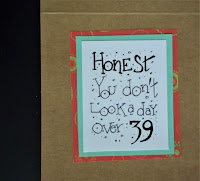 Honest.
You don't
Look a day
Over 39